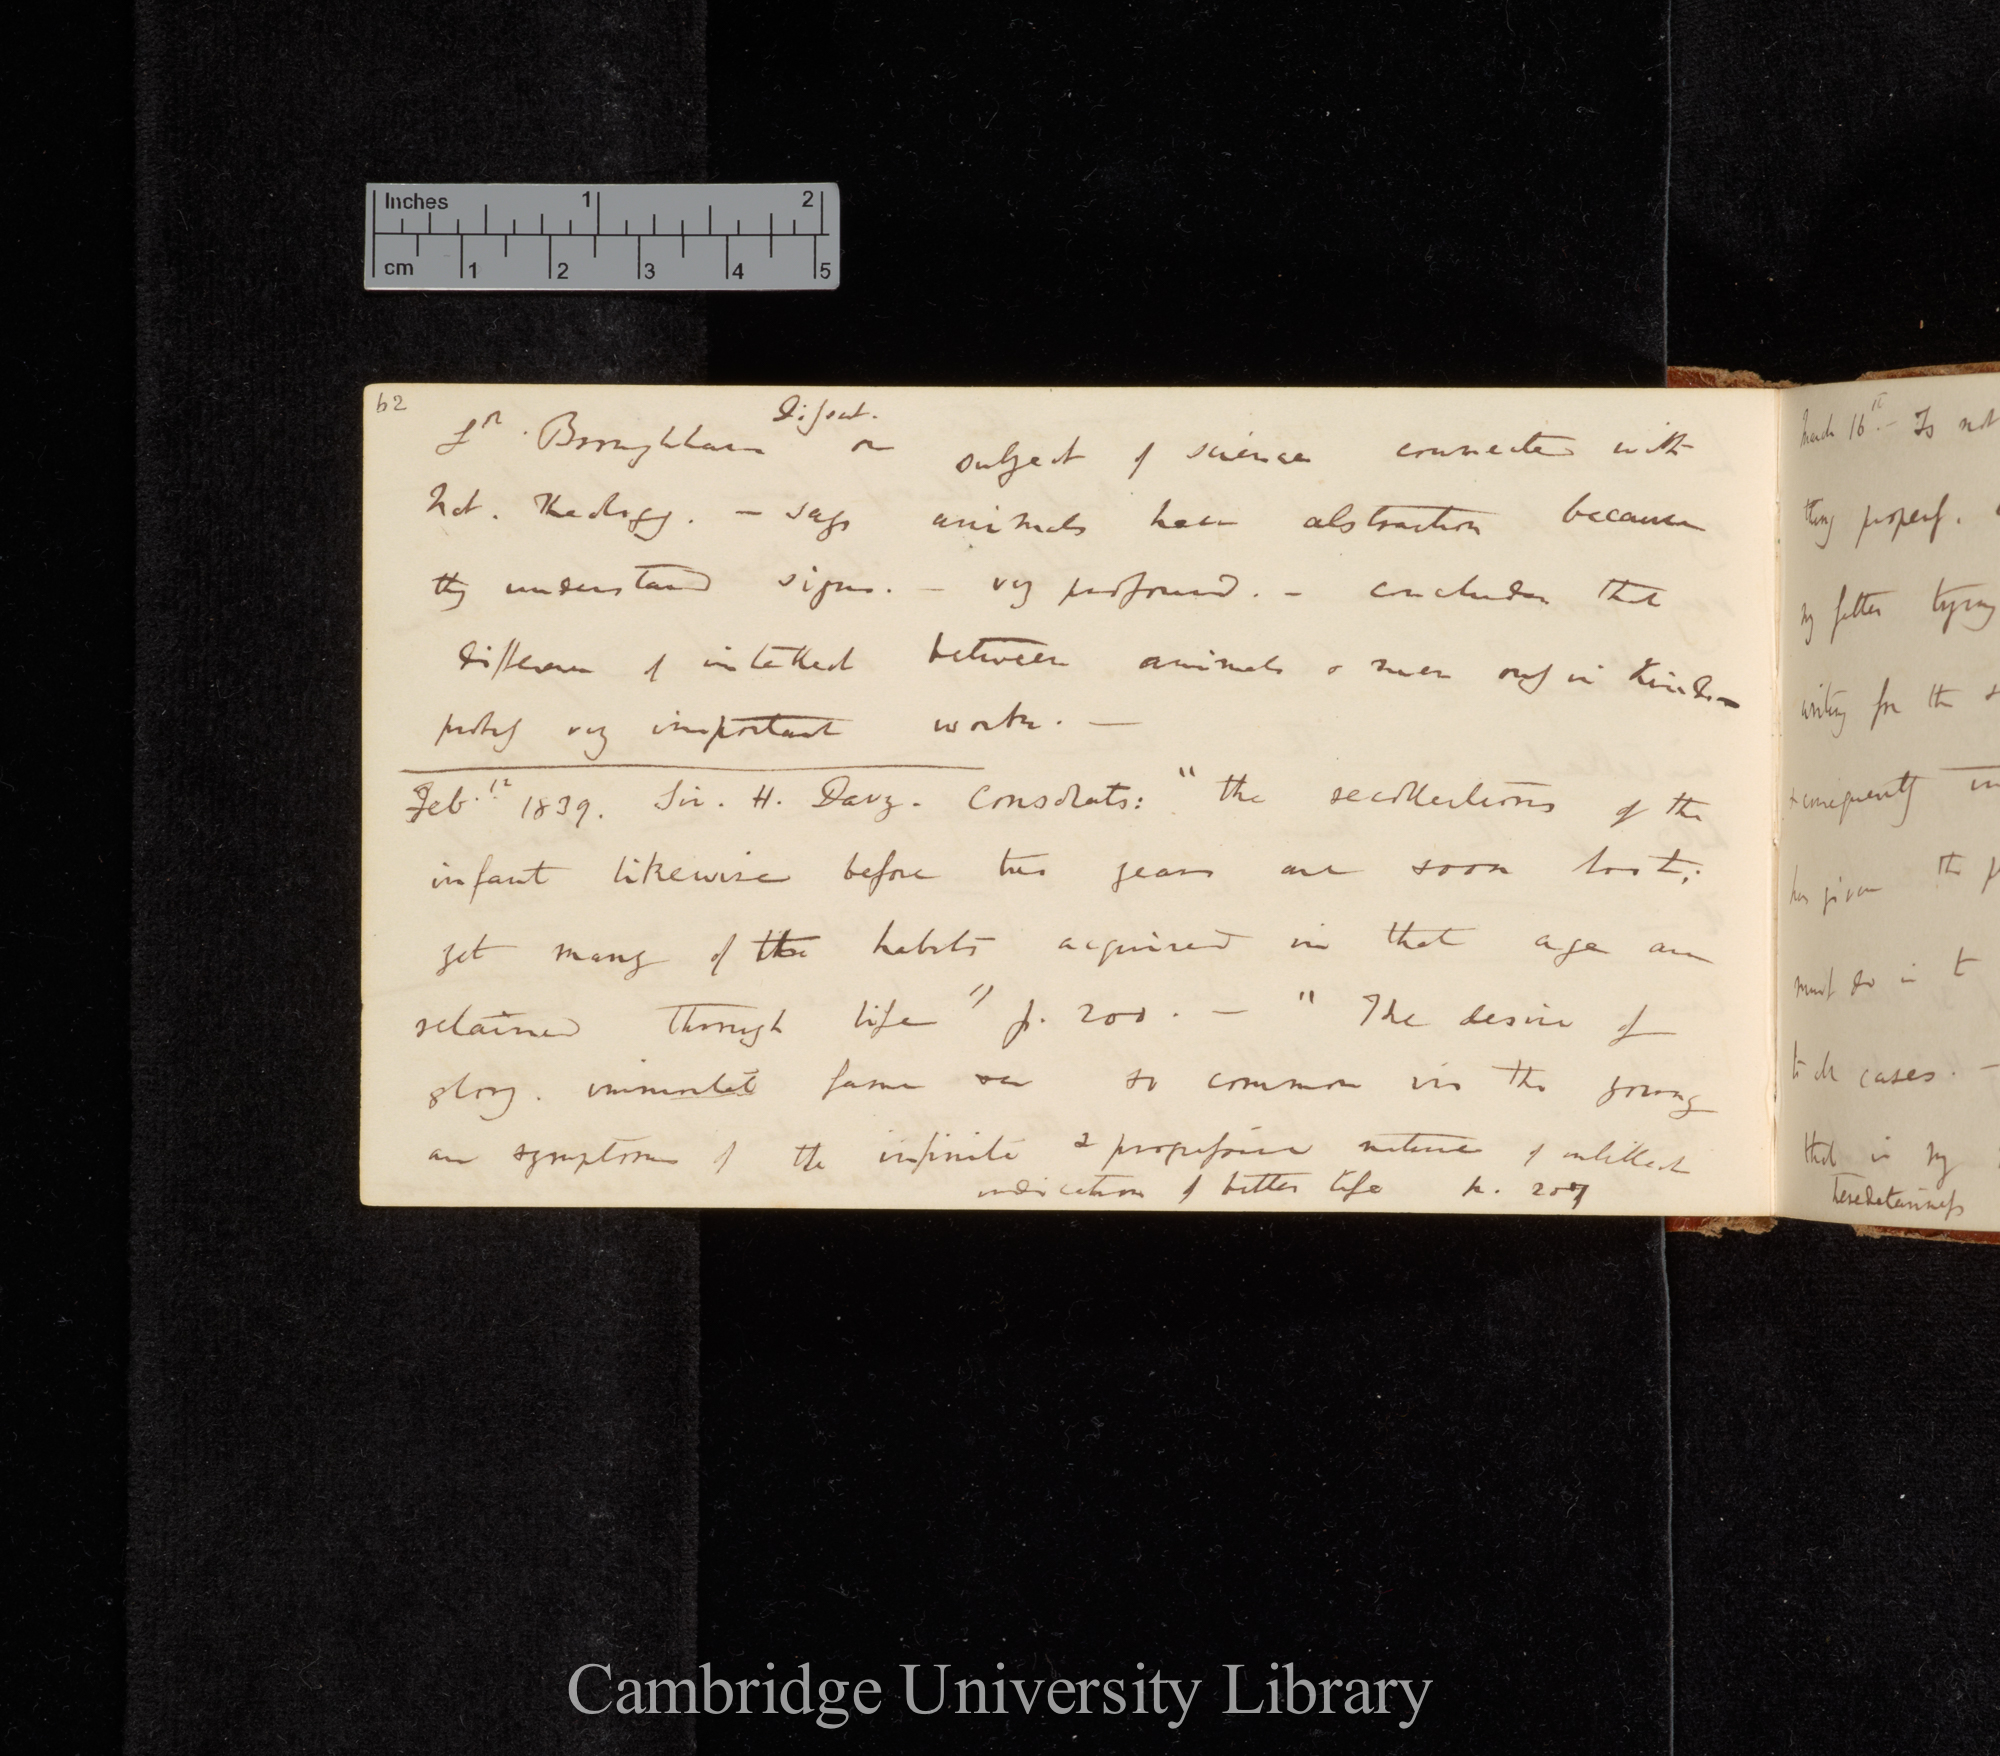 Inches 1 2
cm 1 2 3 4 5
62
Dissert.
Ld. Brougham on subject of science connected with
Nat. Theology. — says animals have abstraction because
they understand signs. — very profound. — concludes that
difference of intellect between animals & men only in Kind.
probably very important work. —
Feb. 12 1839. Sir. H. Davy. Consolats: "the recollections of the
infant likewise before two years are soon lost;
yet many of the habits acquired in that age are
retained through life" p. 200. — "The desire of
glory. immortal fame so common in the young
are symptoms of the infinite & progressive nature of intellect
indication of better life p. 207
March 16th. — Is not
thing properly.
my father trying
writing for the
& consequently
has given the
must do in
cases. —
that is my
hereditariness
Cambridge University Library